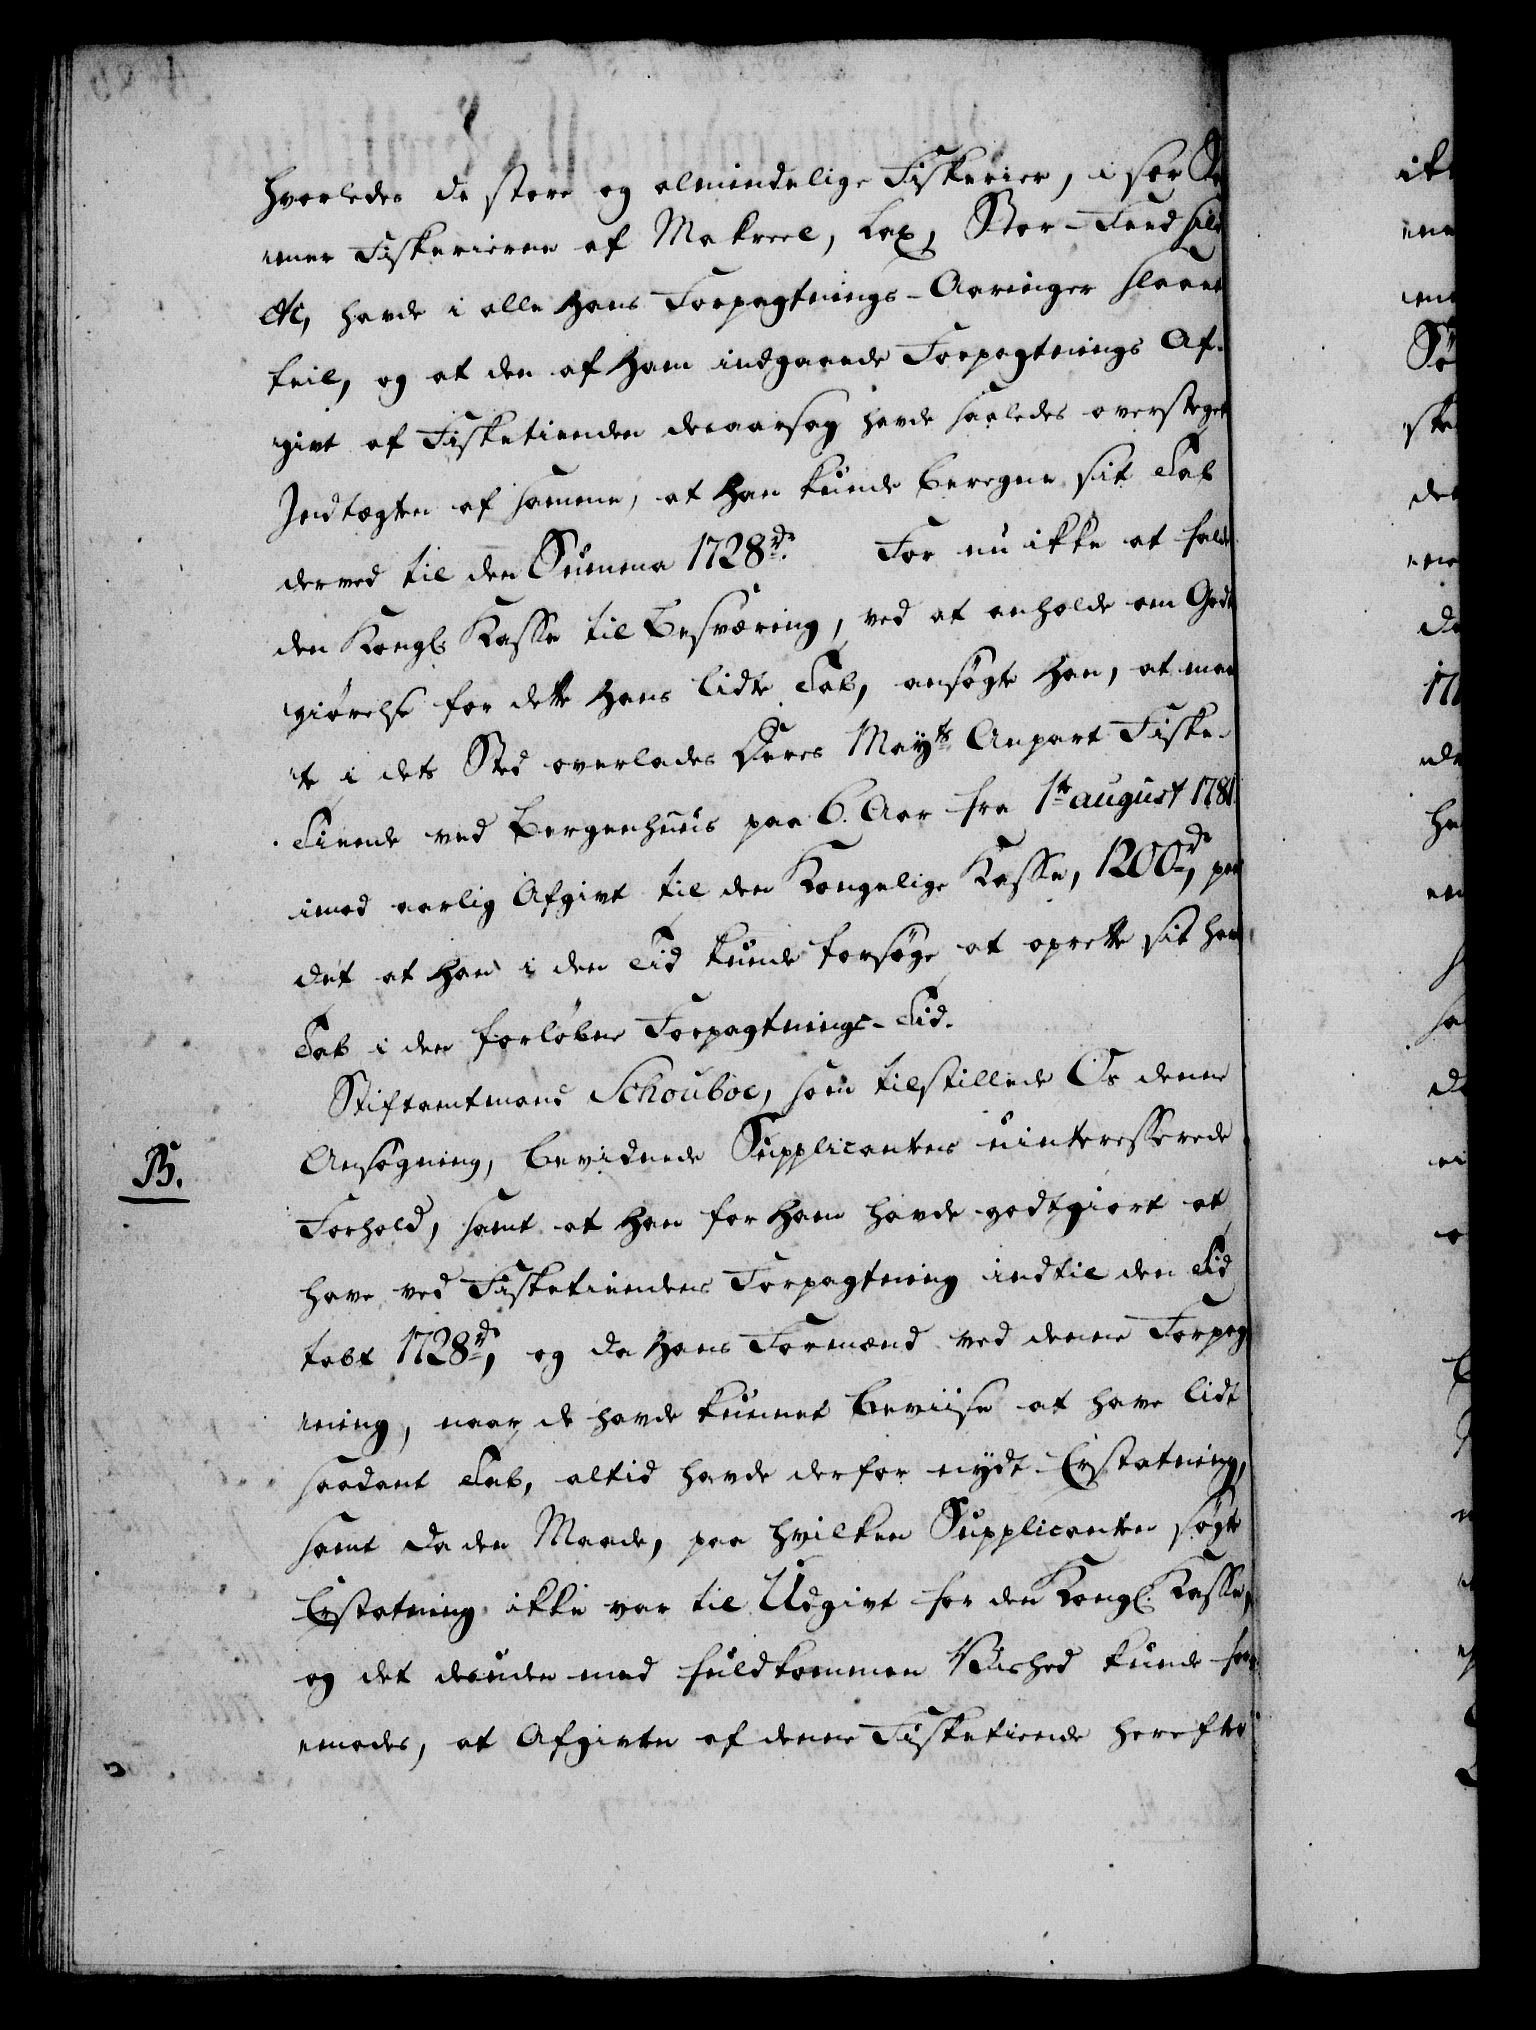 hvorledes de store og almindelige Fiskerier, i sær
mer Fiskerierne af Makreel, Lax, Stor-Feed Sild
etc, havde i alle Hans Forpagtnings-Aaringer slaaet
feil, og at den af Ham indgaaede Forpagtnings Af-
givt af Fisketienden deraarsag havde saaledes oversteget
Indtægten af samme, at Han kunde beregne sit Tab
derved til den Summa 1728 rd. For nu ikke at falde
den Kongl. Kasse til Besværing, ved at anholde om Godt
giørelse for dette Hans lidte Tab, ansøgte Han, at maa
te i dets Sted overlades Deres Mayts Anpart Fiske-
Tiende ved Bergenhuus paa 6. Aar fra 1te august 1781.
imod aarlig Afgivt til den Kongelige Kasse, 1200 rd, paa
det at Han i den Tid kunde forsøge at oprette sit
Tab i den forløbne Forpagtnings-Tid.
Stiftamtmand Schouboe, som tilstillede Os denne
B.
Ansøgning, bevidnede Supplicantens uinteresserede
Forhold, samt at Han for Ham havde godtgiort at
have ved Fisketiendens Forpagtning indtil den Tid
tabt 1728 rd, og da Hans Formænd ved denne Forpag
ning, naar de havde kunnet beviise at have lidt
saadant Tab, altid havde derfor nydt Erstatning,
samt da den Maade, paa hvilken Supplicanten søgte
Erstatning ikke var til Udgivt for den Kongl. Kasse,
og det desuden med fuldkommen Vished kunde for
modes, at Afgivten af denne Fisketiende herefter